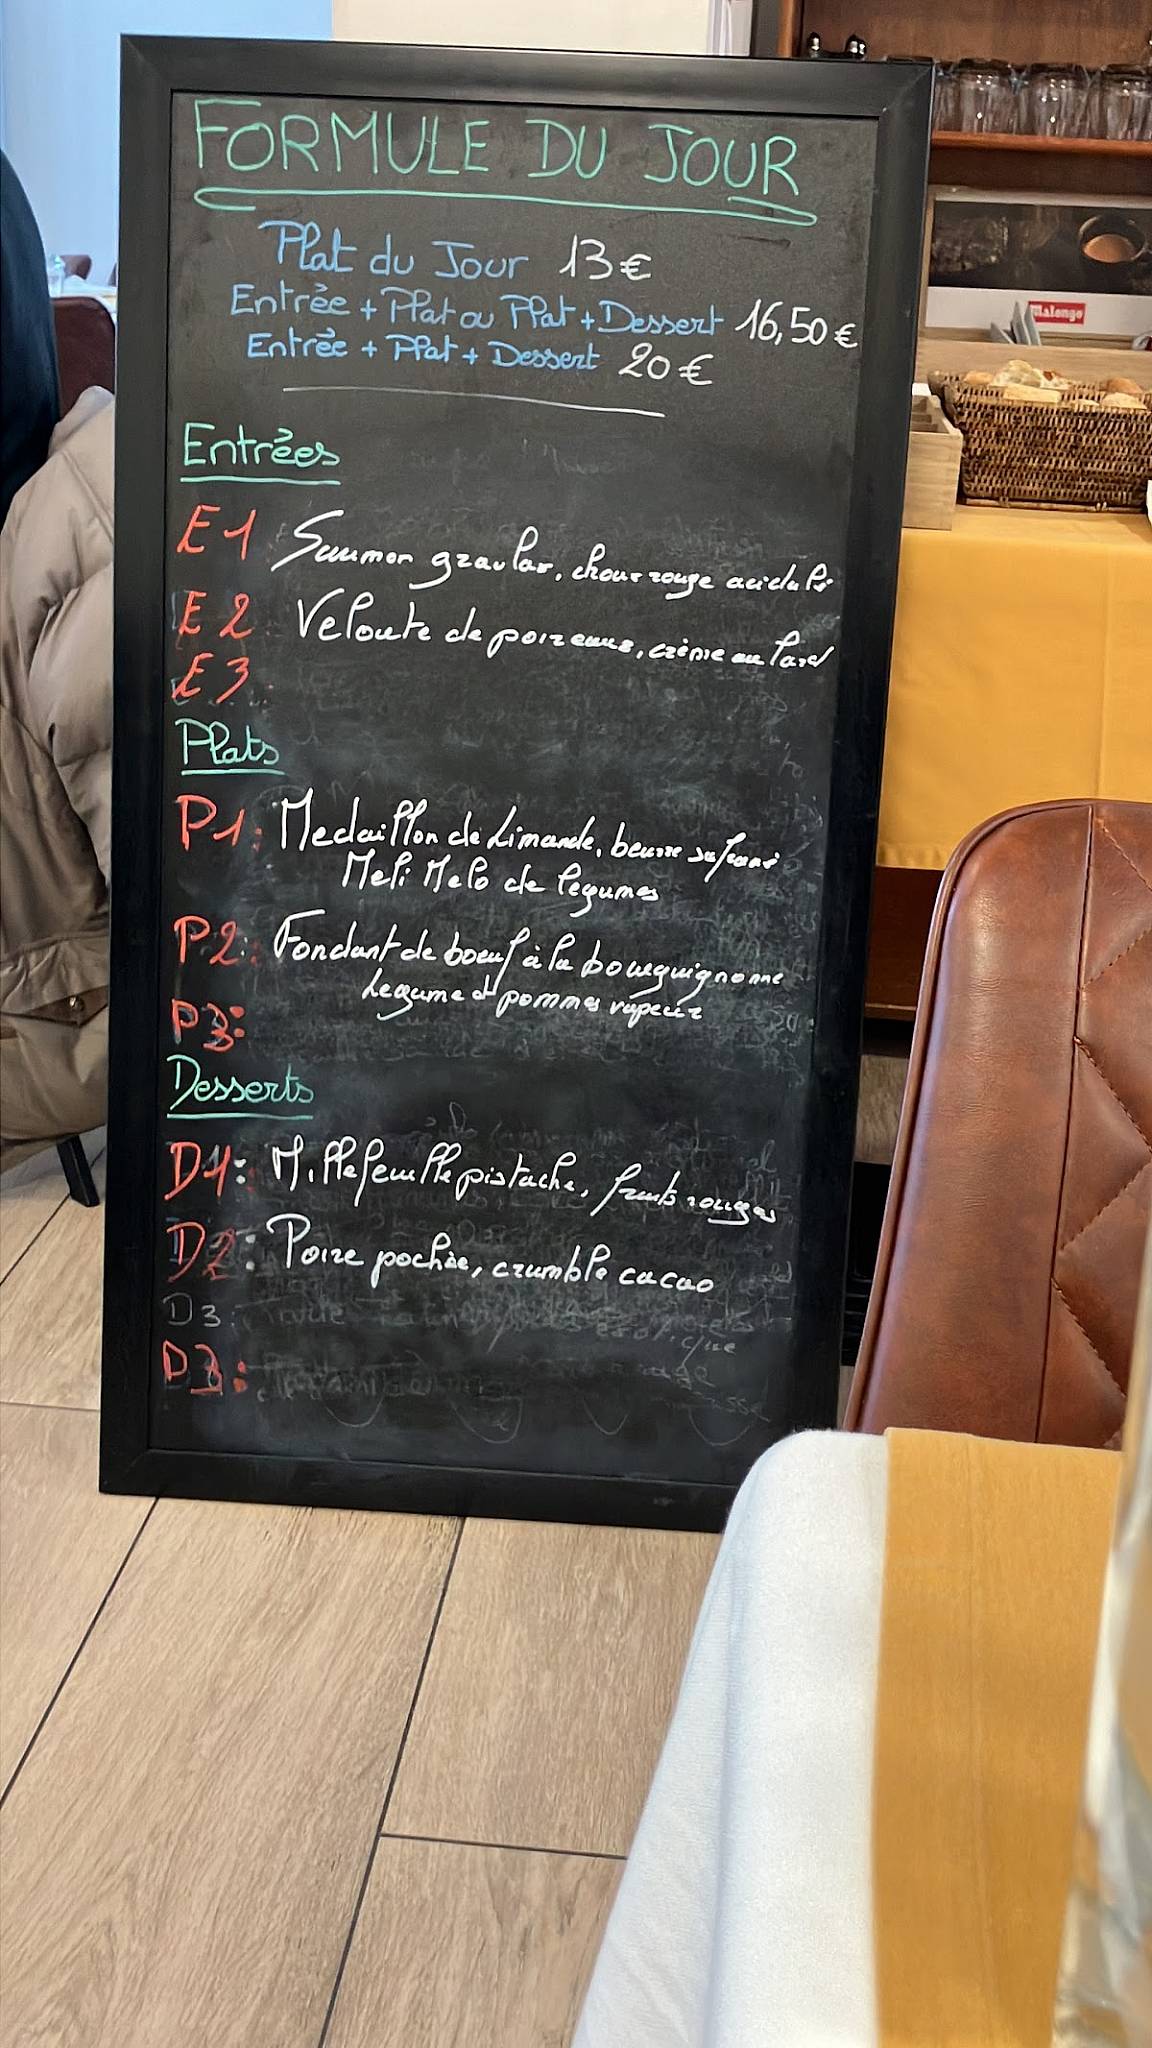 FORMULE DU JOUR
Plat du Jour 13 €
Entrée + Plat ou Plat + Dessert 16,50 €
Entrée + Plat + Dessert 20 €
Entrées
E1 Saumon gravlax, choux rouge acidulé
E2 Velouté de poireaux, crème au lard
E3
Plats
P1: Medaillon de Limande, beurre safrané
Meli Melo de legumes
P2: Fondant de boeuf à la bourguignonne
Legume et pommes vapeur
P3:
Desserts
D1: Millefeuille pistache, fruits rouges
D2: Poire pochée, crumble cacao
D3:
D3:
Malongo